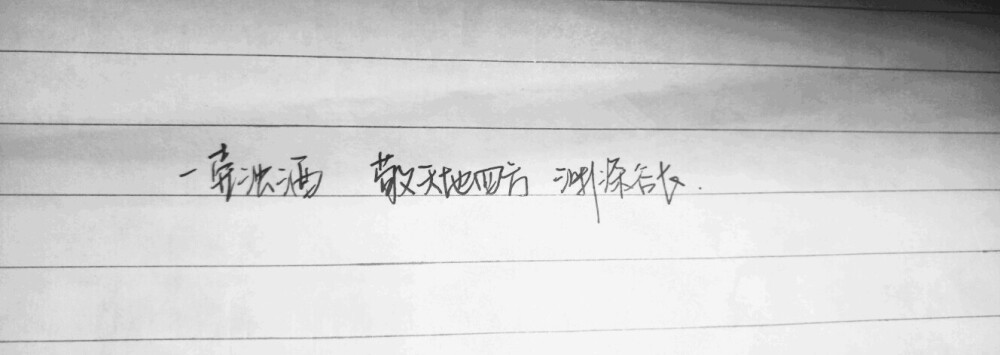 一壶浊酒 敬天地四方 渊深谷长.